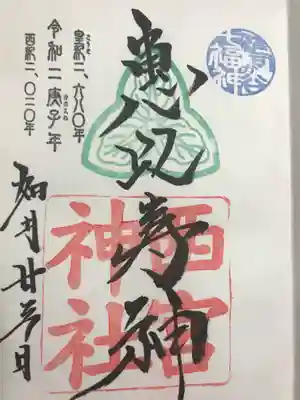 七福神
皇紀二、六八〇年
こうき
令和二庚子年
かのえね
西紀二、〇二〇年
恵比寿神
西宮
神社
如月廿 日